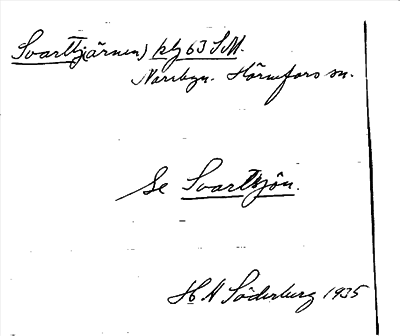 Svarttjärnen) kbl 63 S.M.
Norrbyn. Hörnefors sn.
Se Svarttjön.
H N Söderberg 1935